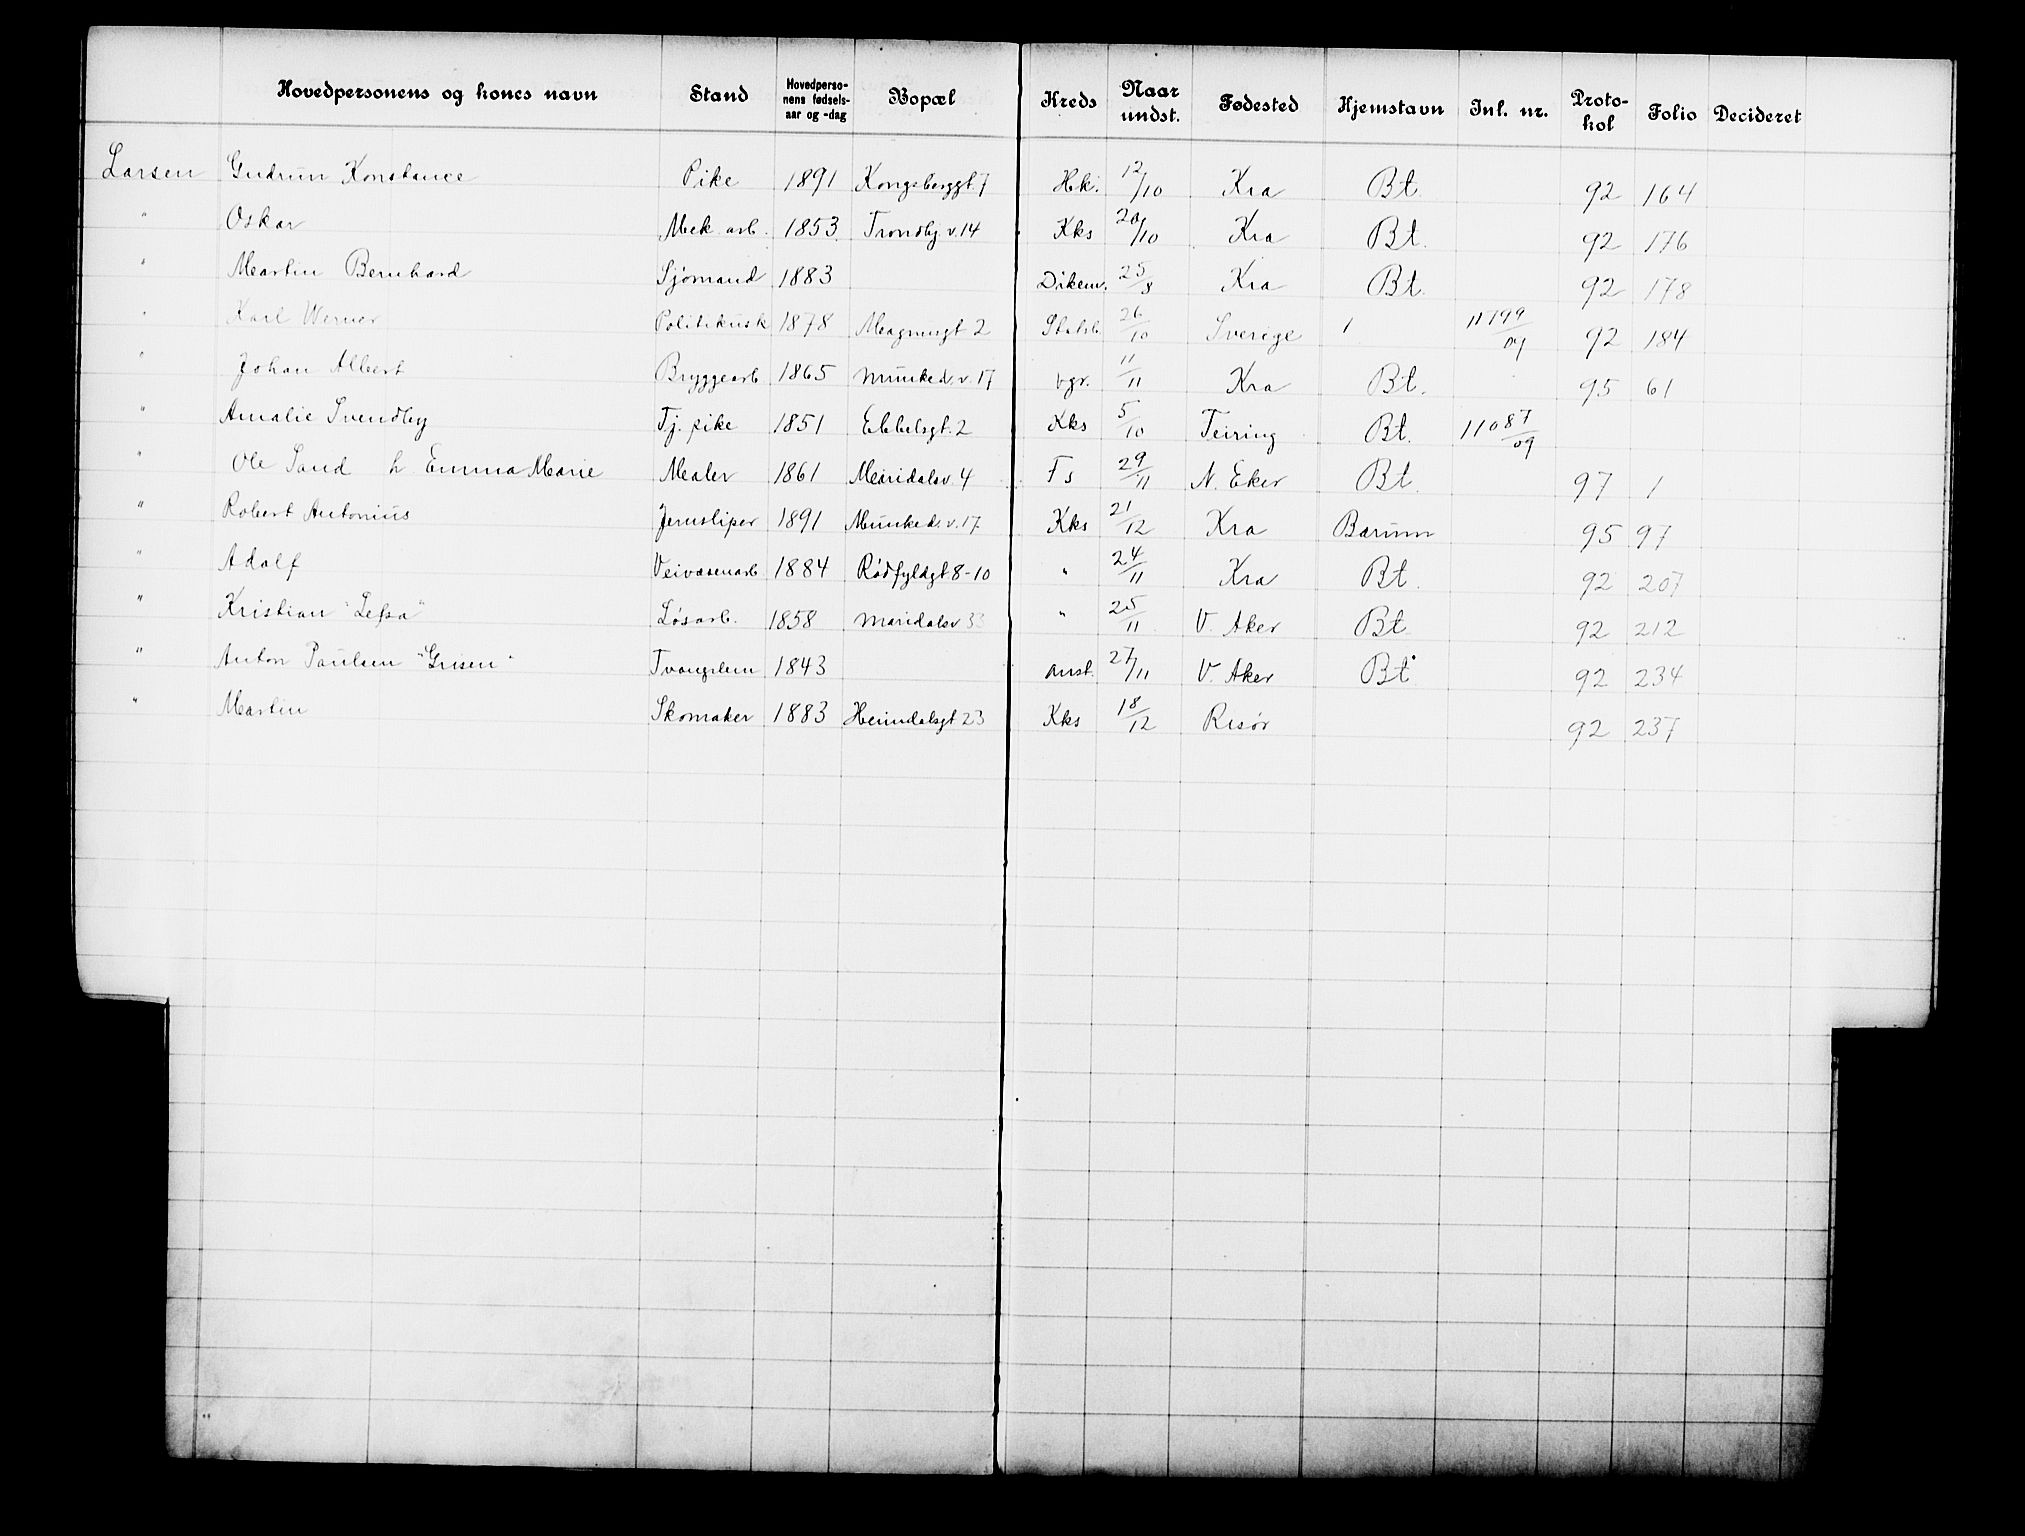 Hovedpersonens og kones navn Stand Hovedperso-nens fødsels-aar og -dag Bopæl Kreds Naar undst. Fødested Hjemstavn Inl. nr. Proto-kol Folio Decideret
Larsen Gudrun Konstance Pike 1891 Kongsberggt. 7 Hk. 12/10 Kra Bt. 92 164
" Oskar Mek. arb. 1853 Trondhj. v. 14 Kks 20/10 Kra Bt. 92 176
" Martin Bernhard Sjömand 1883 Dikem. 25/8 Kra Bt. 92 178
" Karl Werner Politikusk 1878 Magnusgt 2 26/10 Sverige 1 92 184
" Johan Albert Bryggearb. 1865 Munked. v. 17 vgr. 11/11 Kra Bt. 95 61
" Amalie Svendby Tj. pike 1851 Ebbelsgt. 2 Kks 5/10 Feiring Bt. 11087/09
" Ole Sand h Emma Marie Maler 1861 Maridalsv. 4 Fs 29/11 N. Eker Bt. 97 1
" Robert Antonius Jernsliper 1891 Munked. v. 17 Kks 21/12 Kra Bærum 95 97
" Adolf Veivæsenarb 1884 Rødfyldgt 8-10 " 24/11 Kra Bt. 92 207
" Kristian "Lefsa" Løsarb. 1858 Maridalsv 33 " 25/11 V. Aker Bt. 92 212
" Anton Paulsen "Grisen" Tvangslem 1843 Anst. 27/11 V. Aker Bt. 92 234
" Martin Skomaker 1883 Heimdalsgt 23 Kks 18/12 Risør 92 237